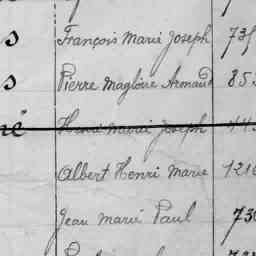 s François Marie Joseph 735
s Pierre Magloire Armand 853
né Henri Marie Joseph 44
Albert Henri Marie 1216
Jean Marie Paul 730